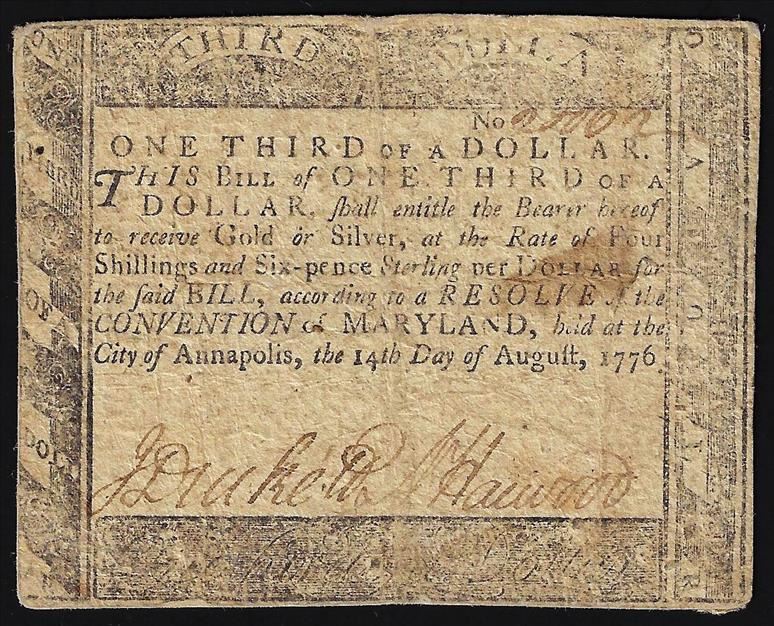 THIRD DOLLA
No
ONE THIRD OF A DOLLAR.
THIS BILL of ONE THIRD OF A
DOLLAR, ſhall entitle the Bearer hereof
to receive Gold or Silver, at the Rate of Four
Shillings and Six-pence Sterling per DOLLAR for
the ſaid BILL, according to a RESOLVE of the
CONVENTION of MARYLAND, held at the
City of Annapolis, the 14th Day of Auguſt, 1776.